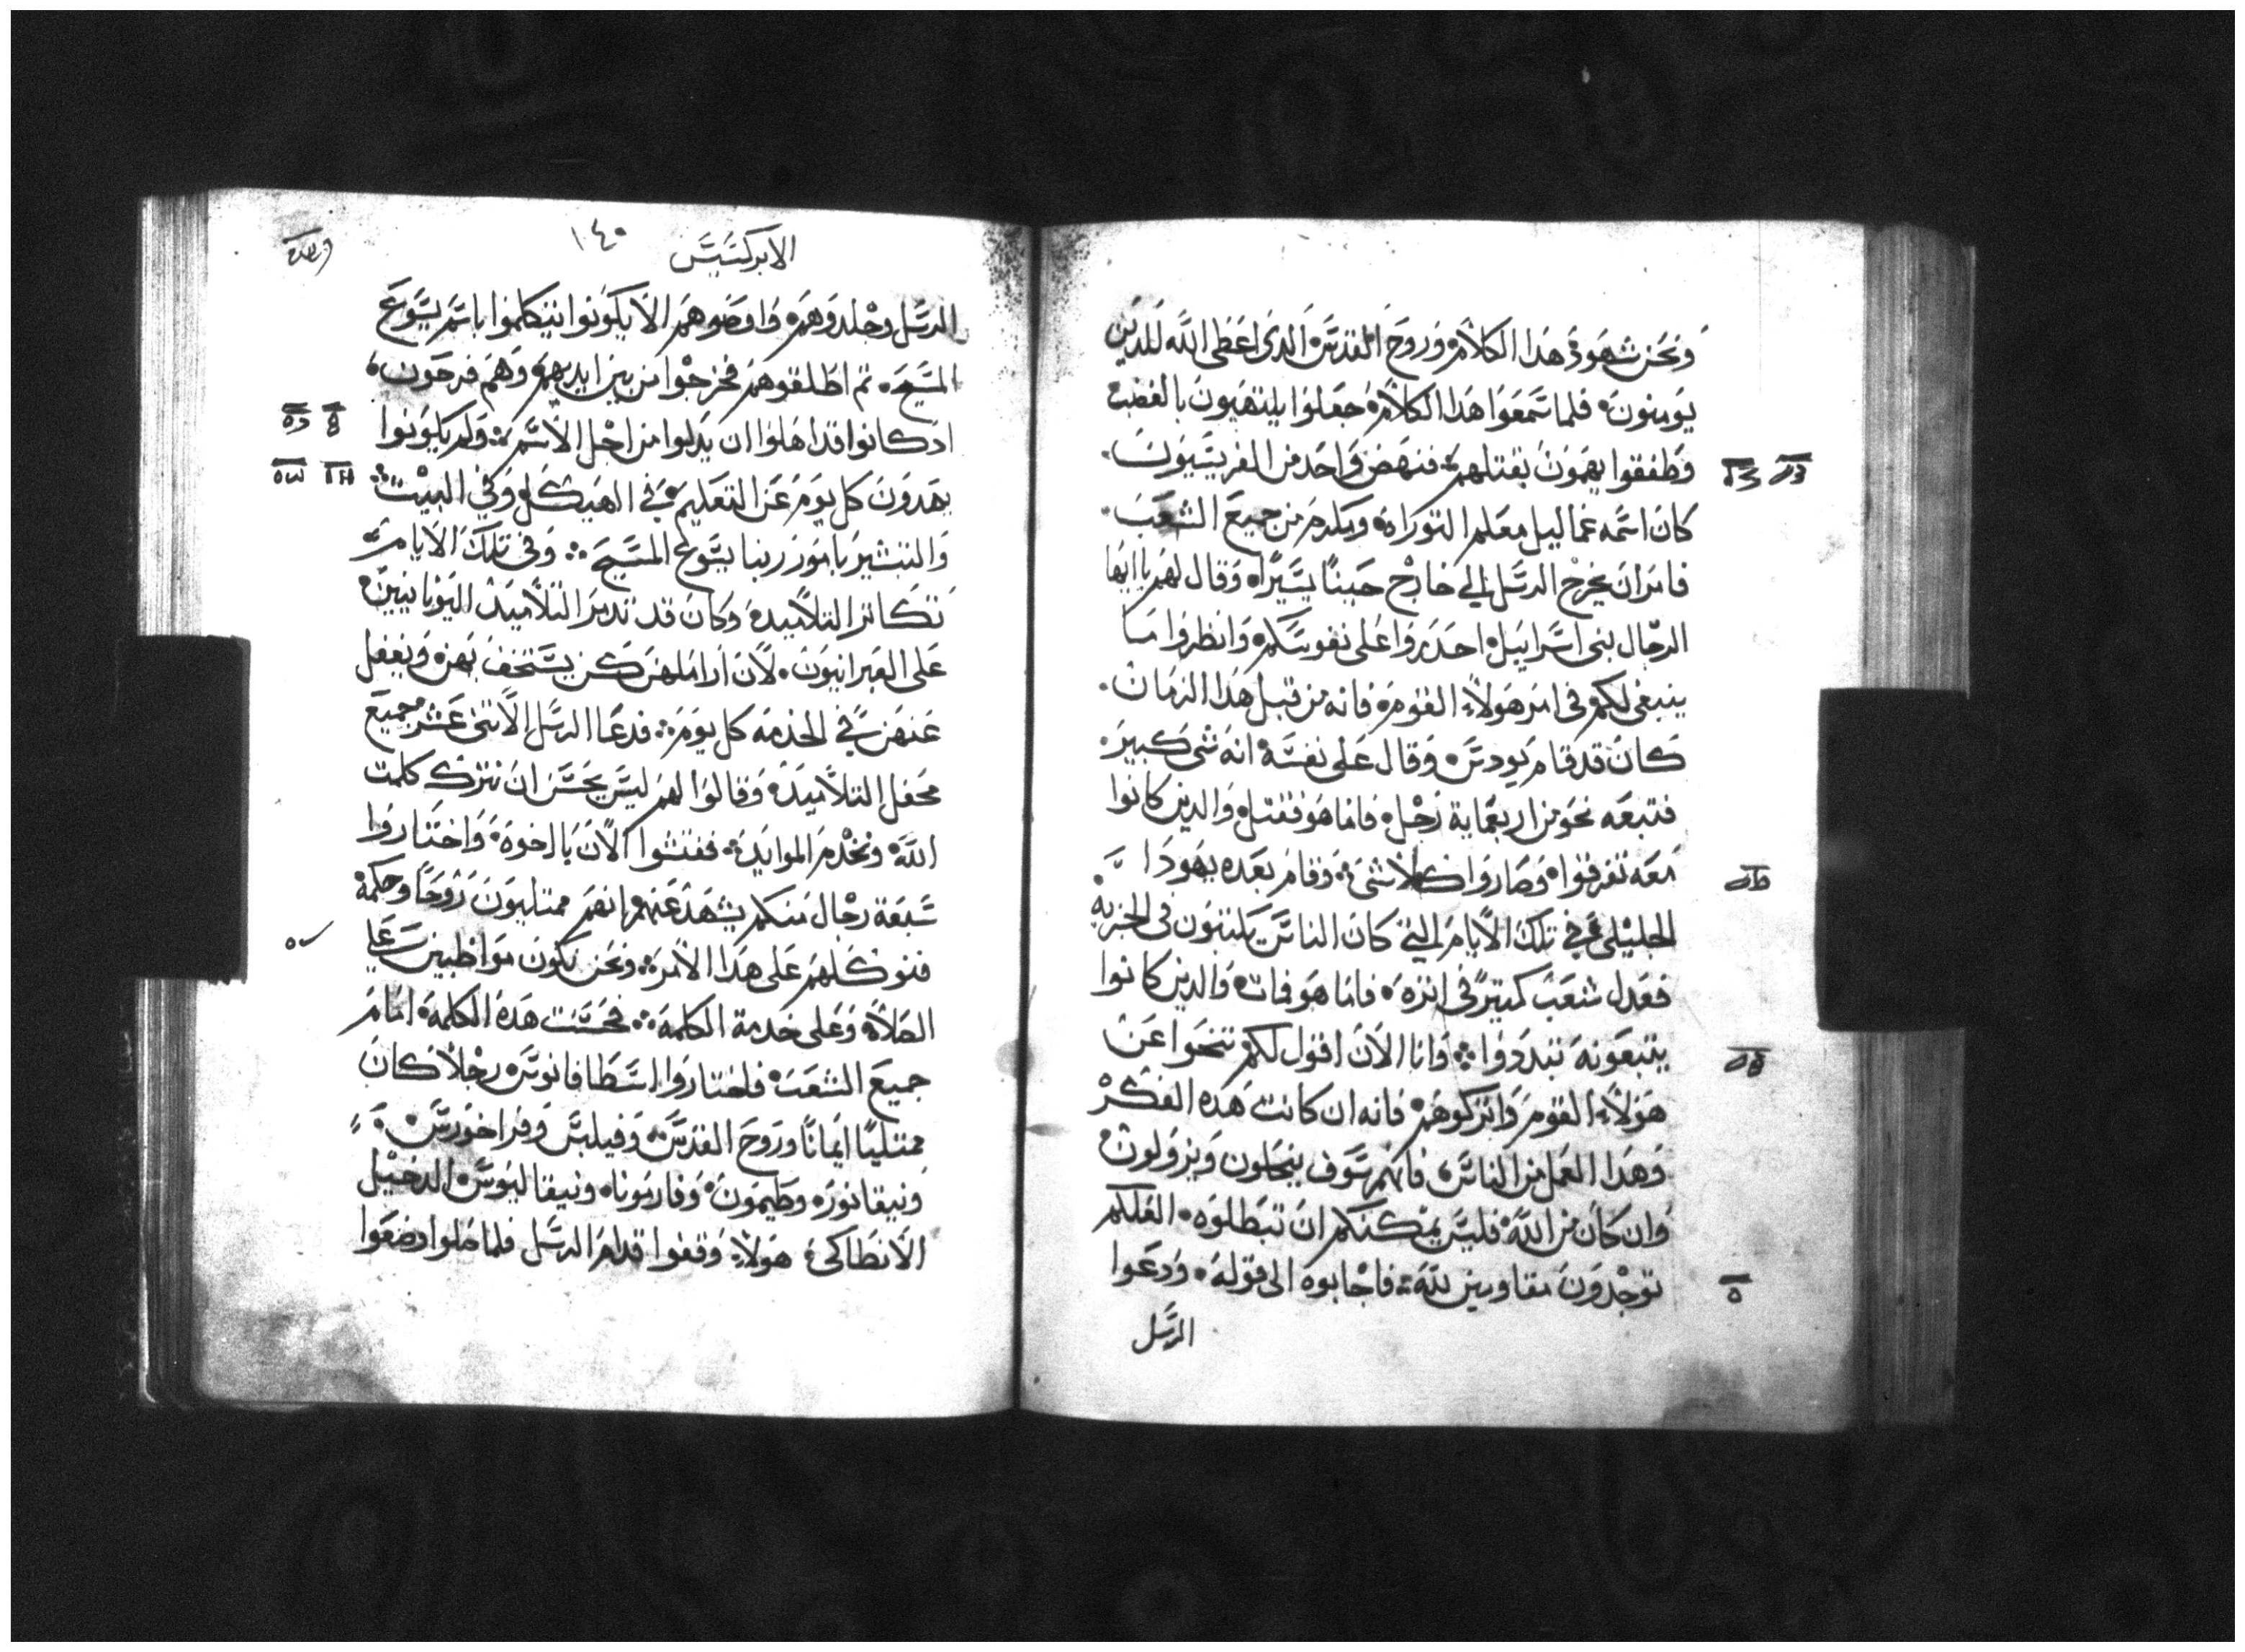 ونحن شهود في هذا الكلام وروح القدس الذي اعطي الله للذين
يومنون فلما سمعوا هذا الكلام جعلوا يلتهبون بالغضب
وطفقوا يهمون بقتلهم فنهض واحد من الفريسيون
كان اسمه غماليل معلم التوراه ويكرم من جميع الشعب
فامر ان يخرج الرسل الي خارج حينا يسيرا وقال لهم يا ايها
الرجال بني اسراييل احدروا علي نفوسكم وانظروا ما
ينبغي لكم في امر هولاء القوم فانه من قبل هذا الزمان
كان قد قام يودس وقال علي نفسه انه شي كبير
فتبعه نحو من اربعماية رجل فاما هو فقتل والدين كانوا
معه تفرقوا وصاروا كلا شي وقام بعده يهودا
الجليلي في تلك الايام التي كان الناس يكتتبون في الجزية
فعدل شعب كتير في اتره فاما هو فمات والدين كانوا
يتبعونه تبددوا وانا الان اقول لكم تنحوا عن
هولاء القوم واتركوهم فانه ان كانت هده الفكر
وهدا العمل من الناس فانهم سوف ينحلون ويزولون
وان كان من الله فليس يمكنكم ان تبطلوه العلكم
توجدون مقاومين لله فاجابوه الي قوله ودعوا
الرسل
الابركسيس ١٤٠
الرسل وجلدوهم واوصوهم الا يكونوا يتكلموا باسم يسوع
المسيح تم اطلقوهم فخرجوا من بين ايديهم وهم فرحون
ادكانوا قد اهلوا ان يدلوا من اجل الاسم ولم يكونوا
يهدون كل يوم عن التعليم في الهيكل وفي البيت
والتبشير بامور ربنا يسوع المسيح وفي تلك الايام
تكاتر التلاميد وكان قد تدمر التلاميد اليونانيين
علي العبرانيون لان اراملهن كن يستخف بهن ويغفل
عنهن في الخدمه كل يوم فدعا الرسل الاتني عشر جميع
محفل التلاميد وقالوا لهم ليس يحسن ان نترك كلمت
الله ونخدم الموايد ففتشوا الان يا اخوه واختاروا
سبعة رجال منكم يشهد عنهم انهم ممتليون روحا وحكمة
فنوكلهم علي هدا الامر ونحن نكون مواظبين علي
الصلاة وعلي خدمة الكلمة فحسنت هده الكلمة امام
جميع الشعب فاختاروا اسطافانوس رجلا كان
ممتليا ايمانا وروح القدس وفيلبس وفراخورس
ونيقانور وطيمون وفارمونا ونيقالاوس الدخيل
الانطاكي هولاء وقفوا قدام الرسل فلما صلوا وضعوا